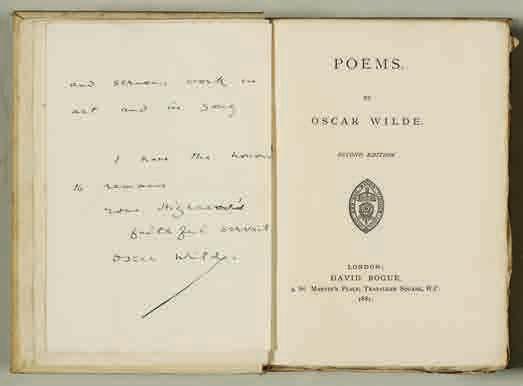 and serious work in
art and in song
I have the honour
to remain
your Highness's
faithful servant
Oscar Wilde.
POEMS.
BY
OSCAR WILDE.
SECOND EDITION
LONDON:
DAVID BOGUE,
3, ST. MARTIN'S PLACE, TRAFALGAR SQUARE, W.C.
1881.